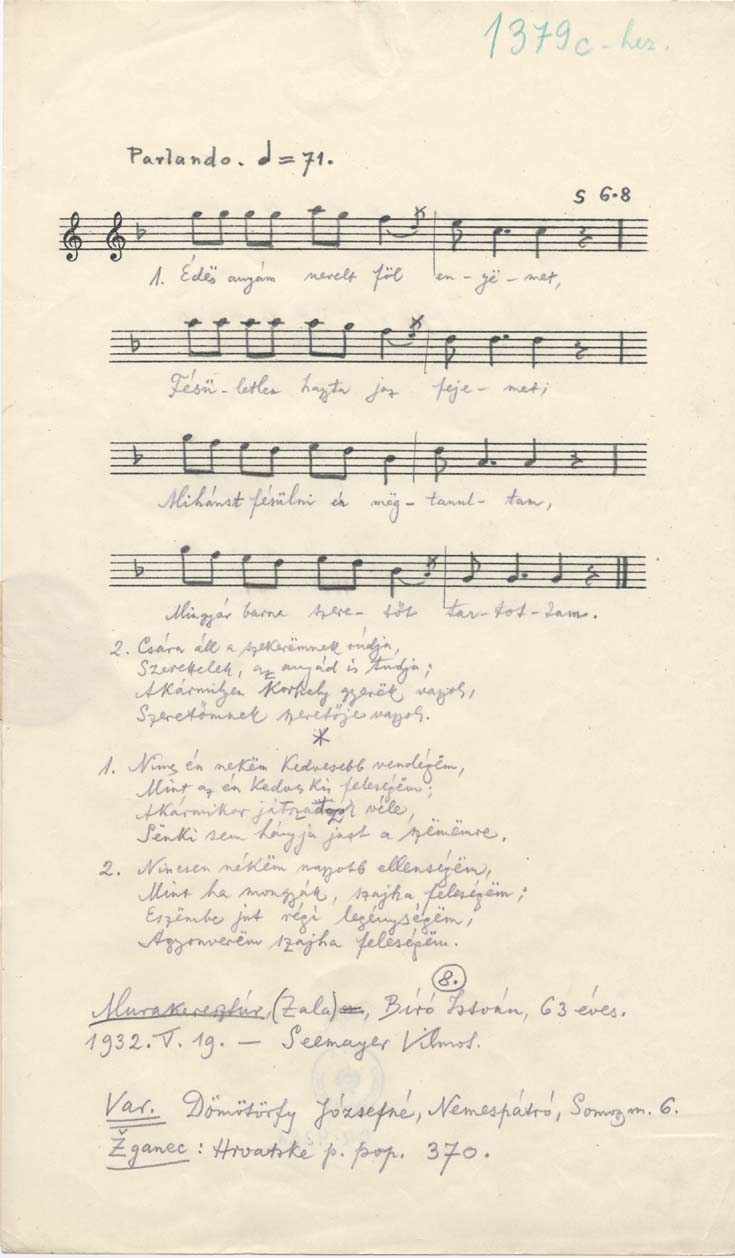 1379c - hez.
Parlando. d = 71.
S 6·8
1. Édës anyám nevelt föl en - gë - met,
Fésü - letlen hagyta jaz feje - met;
Mihánst fésülni én mëg - tanul - tam,
Mingyár barna szere - tőt tar - tot - tam.
2. Csára áll a szekerëmnek rúdja,
Szeretlek, az anyád is tudja;
Akármilyen korhely gyerëk vagyok,
Szeretőmnek szeretője vagyok.
*
1. Nincs én nekëm kedvesebb vendégëm,
Mint az én kedves kis feleségëm;
Akármikor véle,
Sënki sem hányja just a szëmëmre.
2. Nincsen nékëm nagyobb ellenségëm,
Mint ha mongyák, szajha feleségëm;
Eszëmbe jut régi legénységëm,
Agyonverëm szajha feleségëm.
8.
Murakeresztúr, (Zala), Bíró István, 63 éves.
1932. V. 19. — Seemayer Vilmos.
Var. Dömötörfy Józsefné, Nemespátró, Somogy m. 6.
Žganec: Hrvatske p. pop. 370.